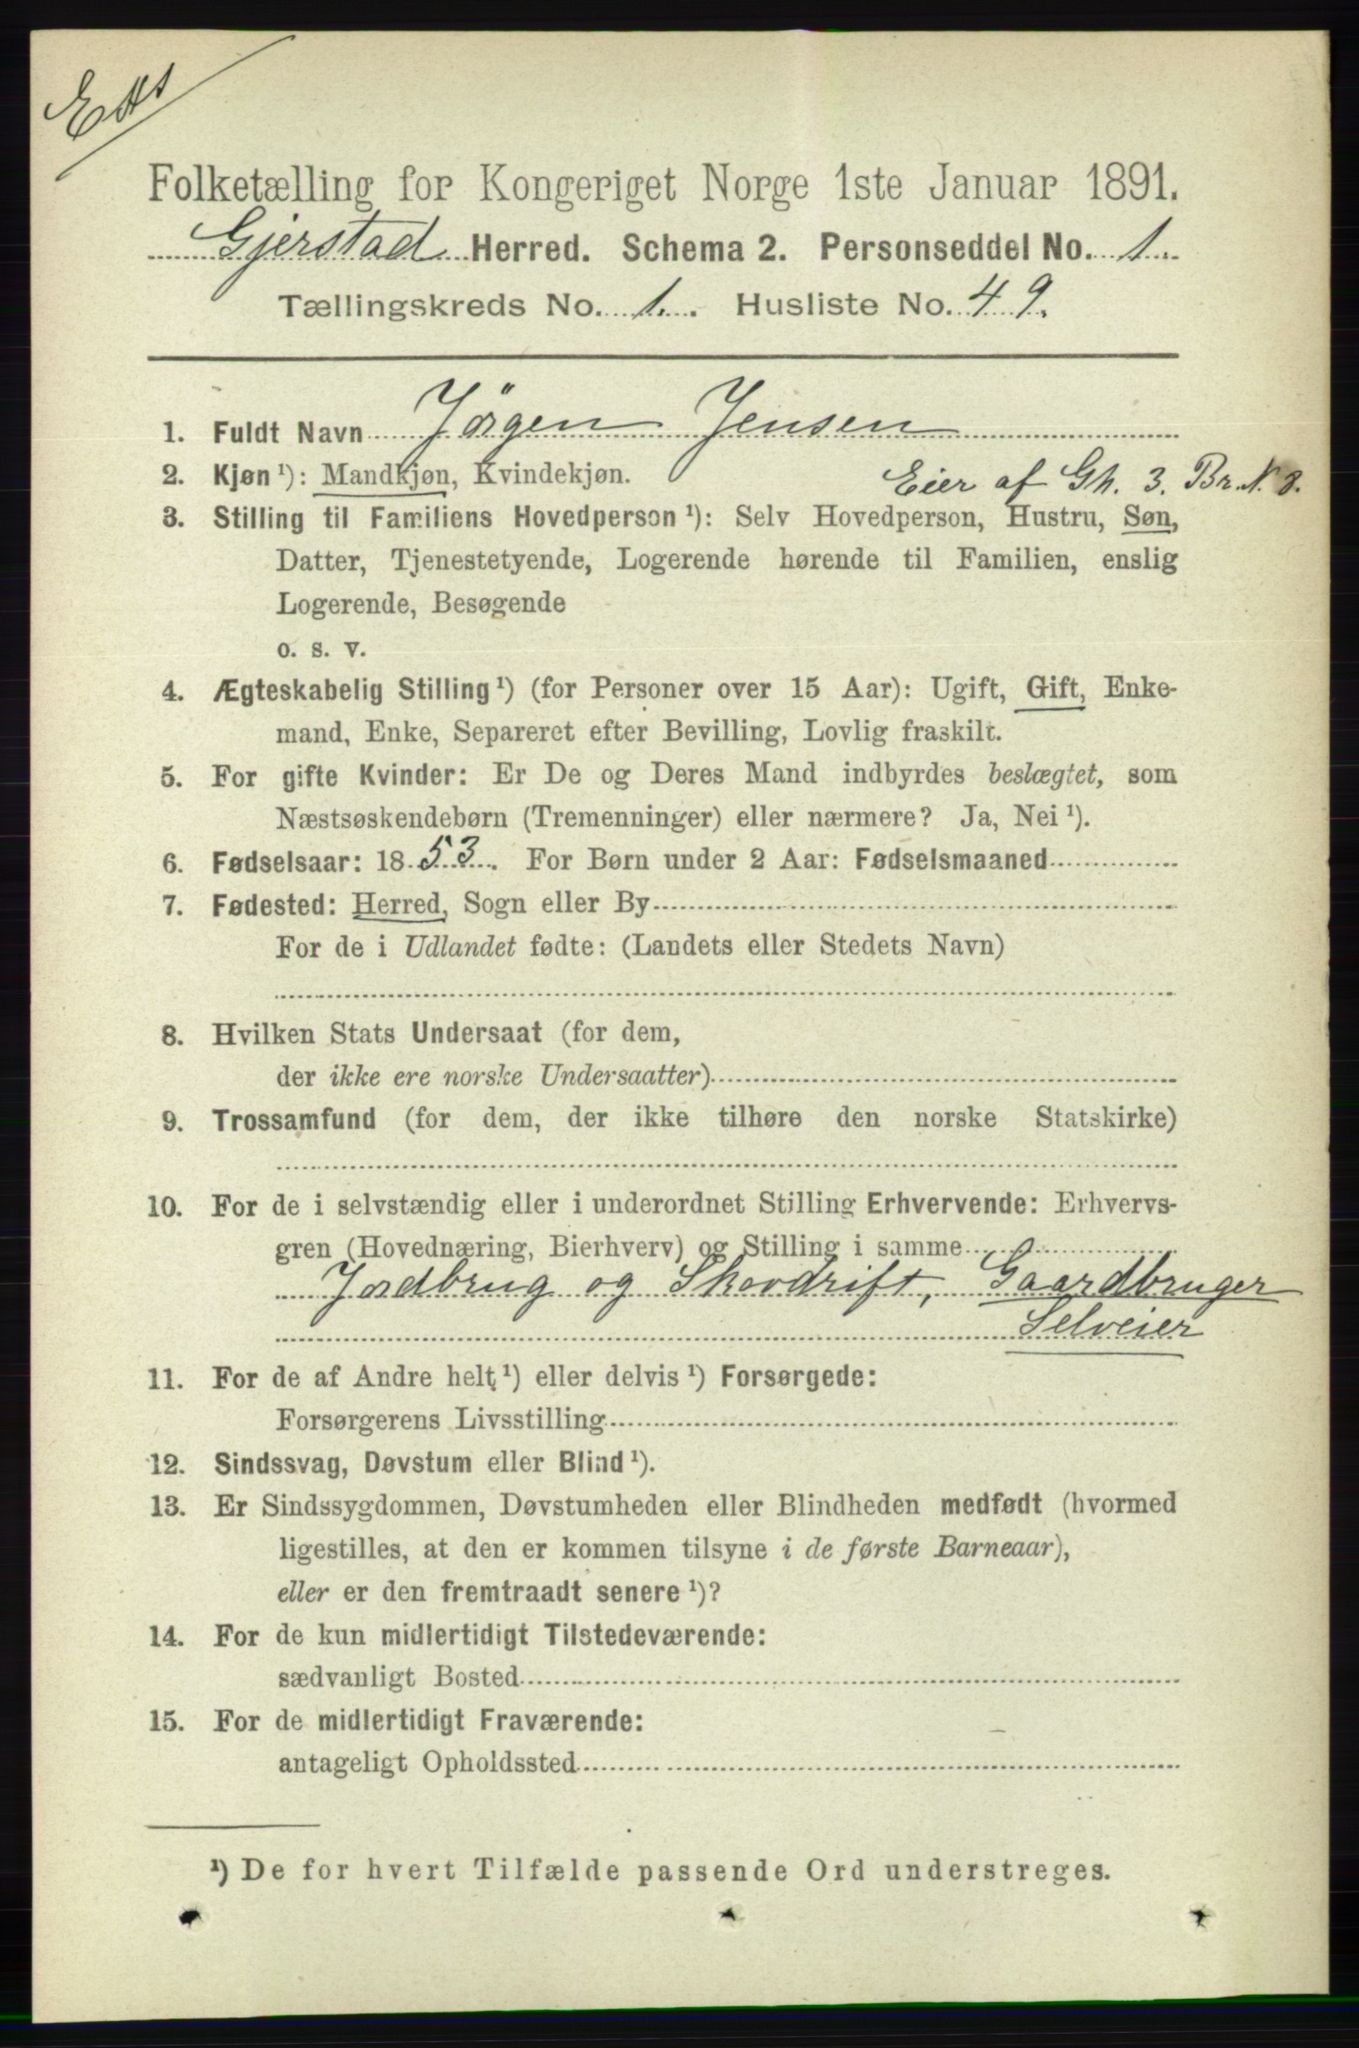 Folketælling for Kongeriget Norge 1ste Januar 1891.
Gjerstad Herred. Schema 2. Personseddel No. 1.
Tællingskreds No. 1. Husliste No. 49.
1. Fuldt Navn Jørgen Jensen
2. Kjøn ¹): Mandkjøn, Kvindekjøn.
Eier af Gh. 3. Br. N. 8.
3. Stilling til Familiens Hovedperson ¹): Selv Hovedperson, Hustru, Søn,
Datter, Tjenestetyende, Logerende hørende til Familien, enslig
Logerende, Besøgende
o. s. v.
4. Ægteskabelig Stilling ¹) (for Personer over 15 Aar): Ugift, Gift, Enke-
mand, Enke, Separeret efter Bevilling, Lovlig fraskilt.
5. For gifte Kvinder: Er De og Deres Mand indbyrdes beslægtet, som
Næstsøskendebørn (Tremenninger) eller nærmere? Ja, Nei ¹).
6. Fødselsaar: 1853. For Børn under 2 Aar: Fødselsmaaned
7. Fødested: Herred, Sogn eller By
For de i Udlandet fødte: (Landets eller Stedets Navn)
8. Hvilken Stats Undersaat (for dem,
der ikke ere norske Undersaatter)
9. Trossamfund (for dem, der ikke tilhøre den norske Statskirke)
10. For de i selvstændig eller i underordnet Stilling Erhvervende: Erhvervs-
gren (Hovednæring, Bierhverv) og Stilling i samme
Jordbrug og Skovdrift, Gaardbruger
Selveier
11. For de af Andre helt ¹) eller delvis ¹) Forsørgede:
Forsørgerens Livsstilling
12. Sindssvag, Døvstum eller Blind ¹).
13. Er Sindssygdommen, Døvstumheden eller Blindheden medfødt (hvormed
ligestilles, at den er kommen tilsyne i de første Barneaar),
eller er den fremtraadt senere ¹)?
14. For de kun midlertidigt Tilstedeværende:
sædvanligt Bosted
15. For de midlertidigt Fraværende:
antageligt Opholdssted
¹) De for hvert Tilfælde passende Ord understreges.